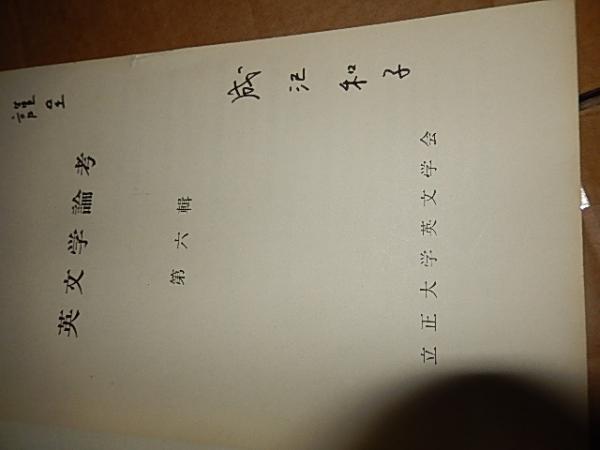 謹呈
英文学論考
第六輯
成江和子
立正大学英文学会